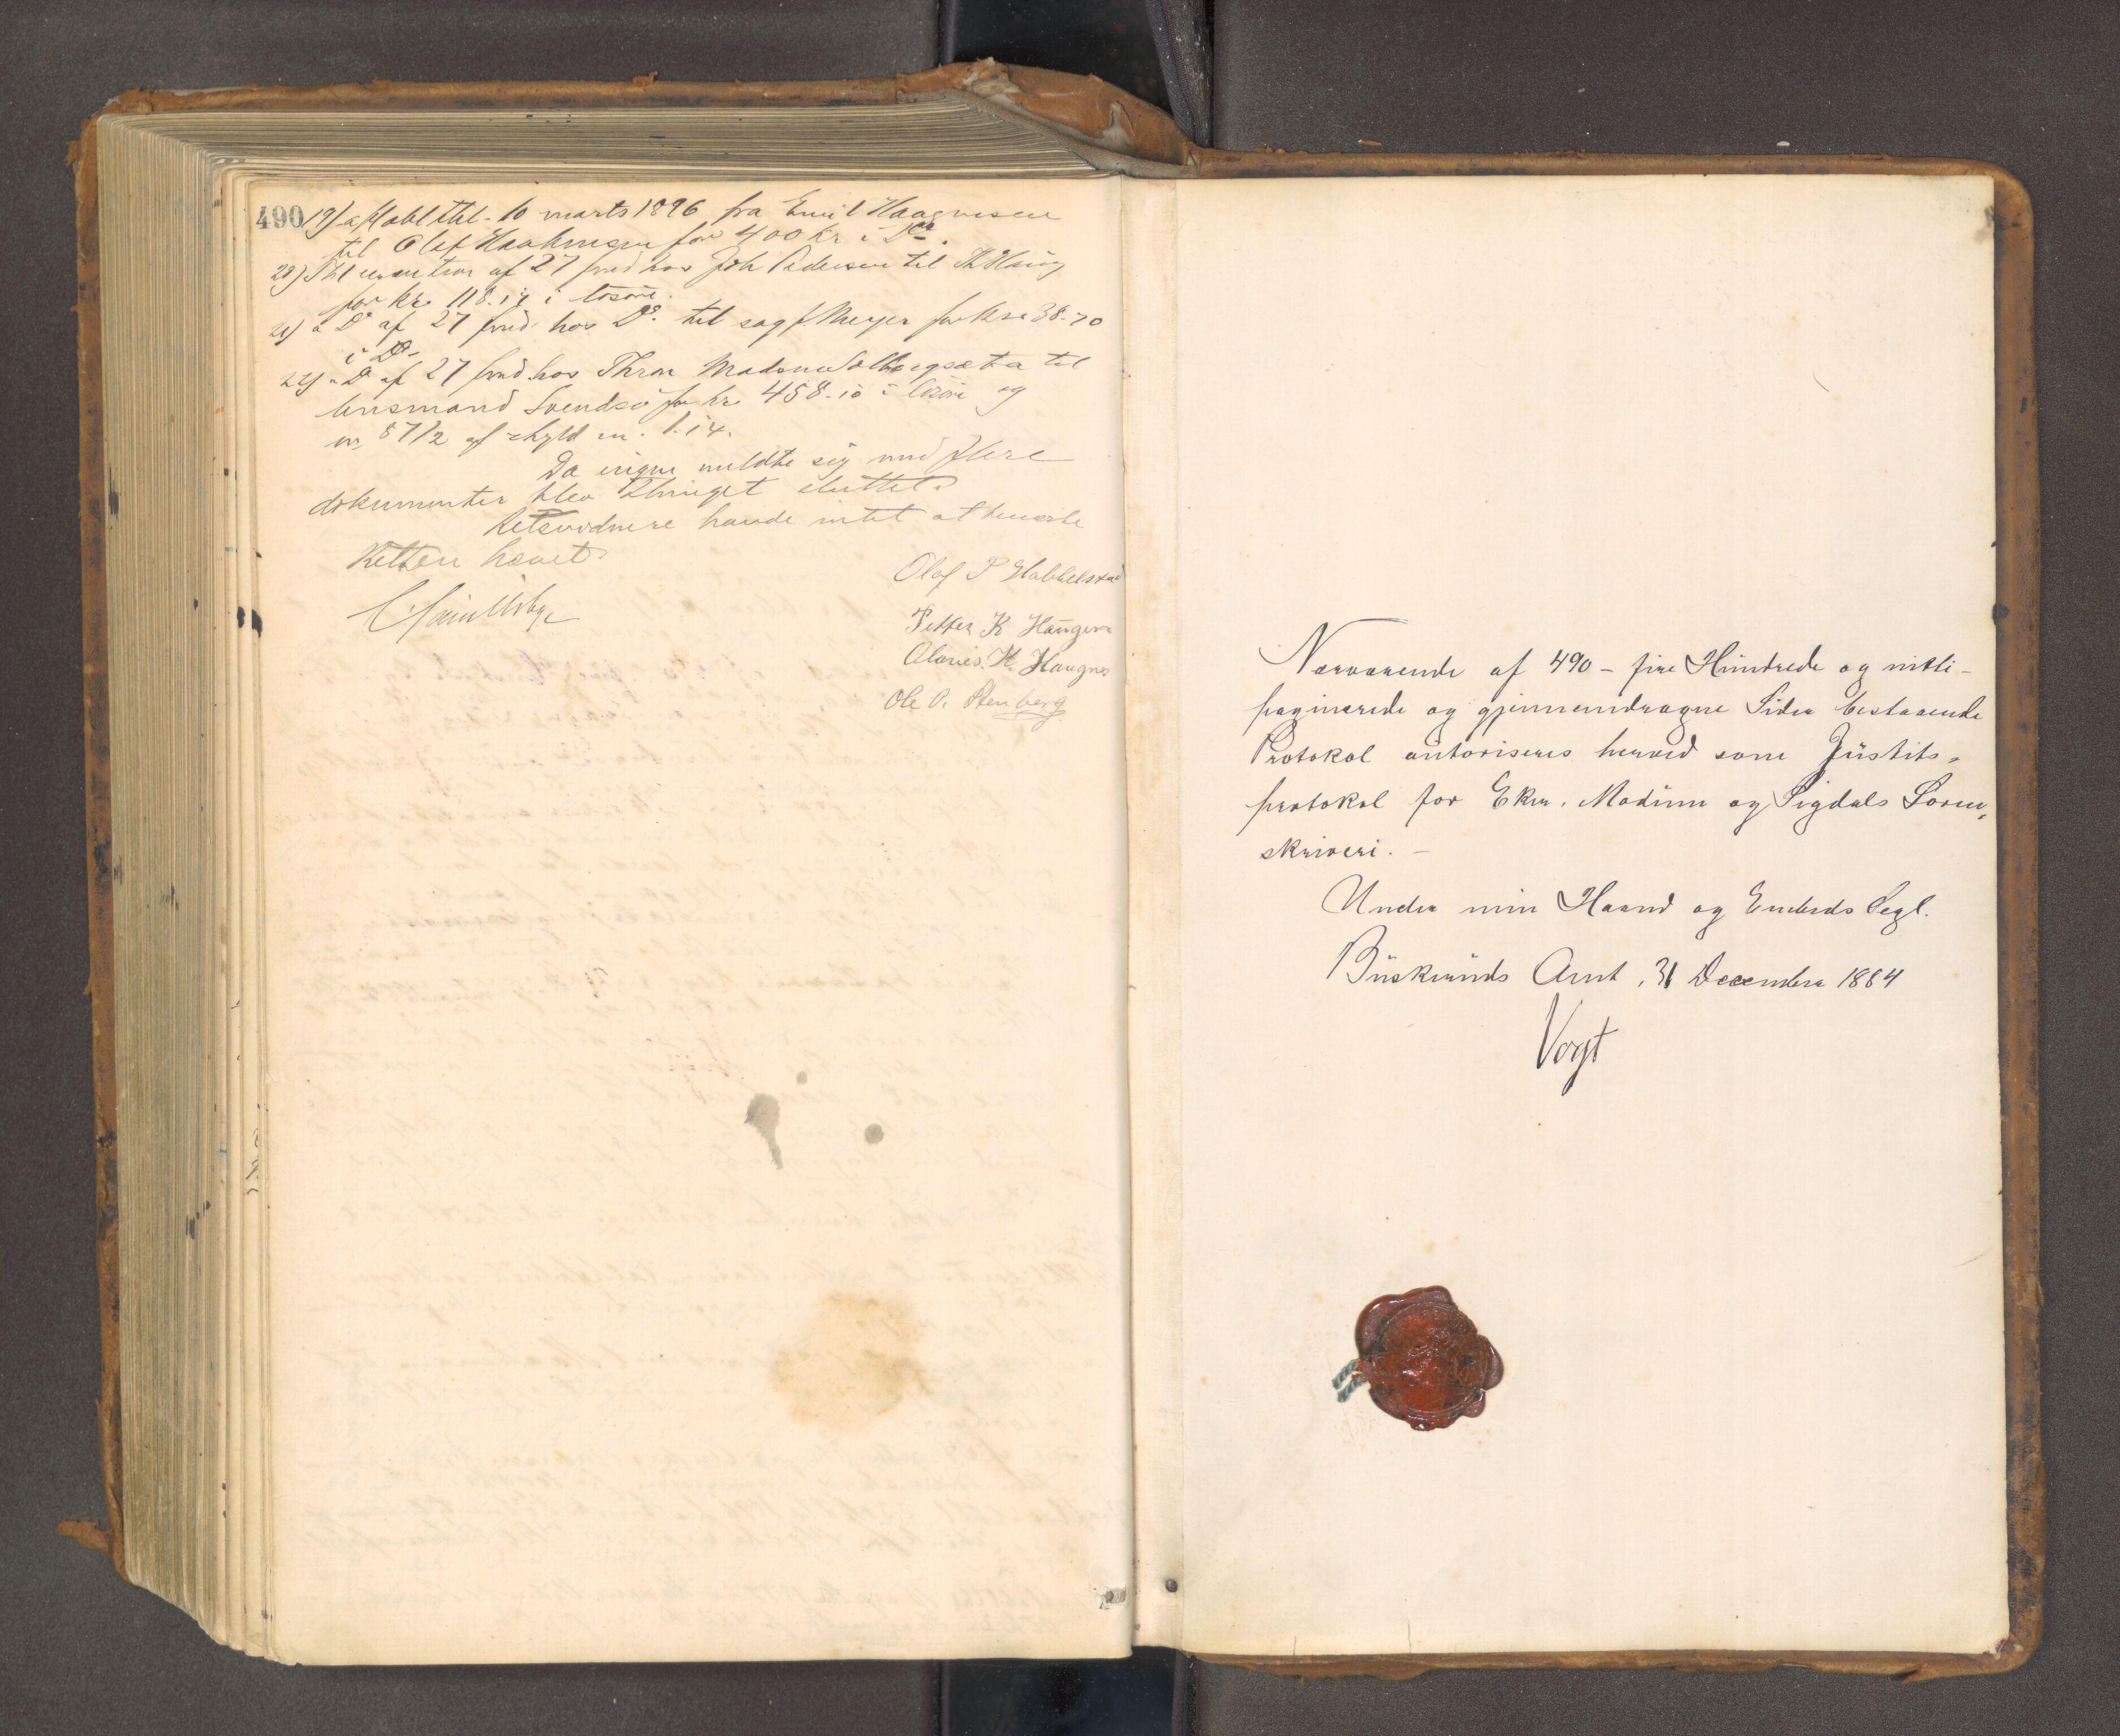 490
19) 10 marts 1896 fra Emil Haagensen
til Olaf Haakensen for 400 kr i Do.
20) af 27 hos Joh Pedersen til
for kr. 118.14 i løsøre.
21) a Do af 27 hos Do. til sagf. Meyer for kr 38-70
i Do
22) a Do af 27 hos Thron Madsen til
lensmand Svendsø for kr. 458-10 i løsøre og
87/2 af skyld m. 1.14.
Da ingen meldte sig med flere
dokumenter blev thinget sluttet.
Retsvidnere havde intet at bemerke
Retten hævet
Olaf P
Petter K Haugen
H. Haugnes
Ole P. Stenberg
Nærværende af 490 - fire Hundrede og nitti -
paginerede og gjennemdragne Sider bestaaende
Protokol autoriseres herved som Justits-
protokol for Eker, Modum og Sigdals Soren,
skriveri. -
Under min Haand og Embeds Segl.
Buskeruds Amt, 31 December 1884
Vogt